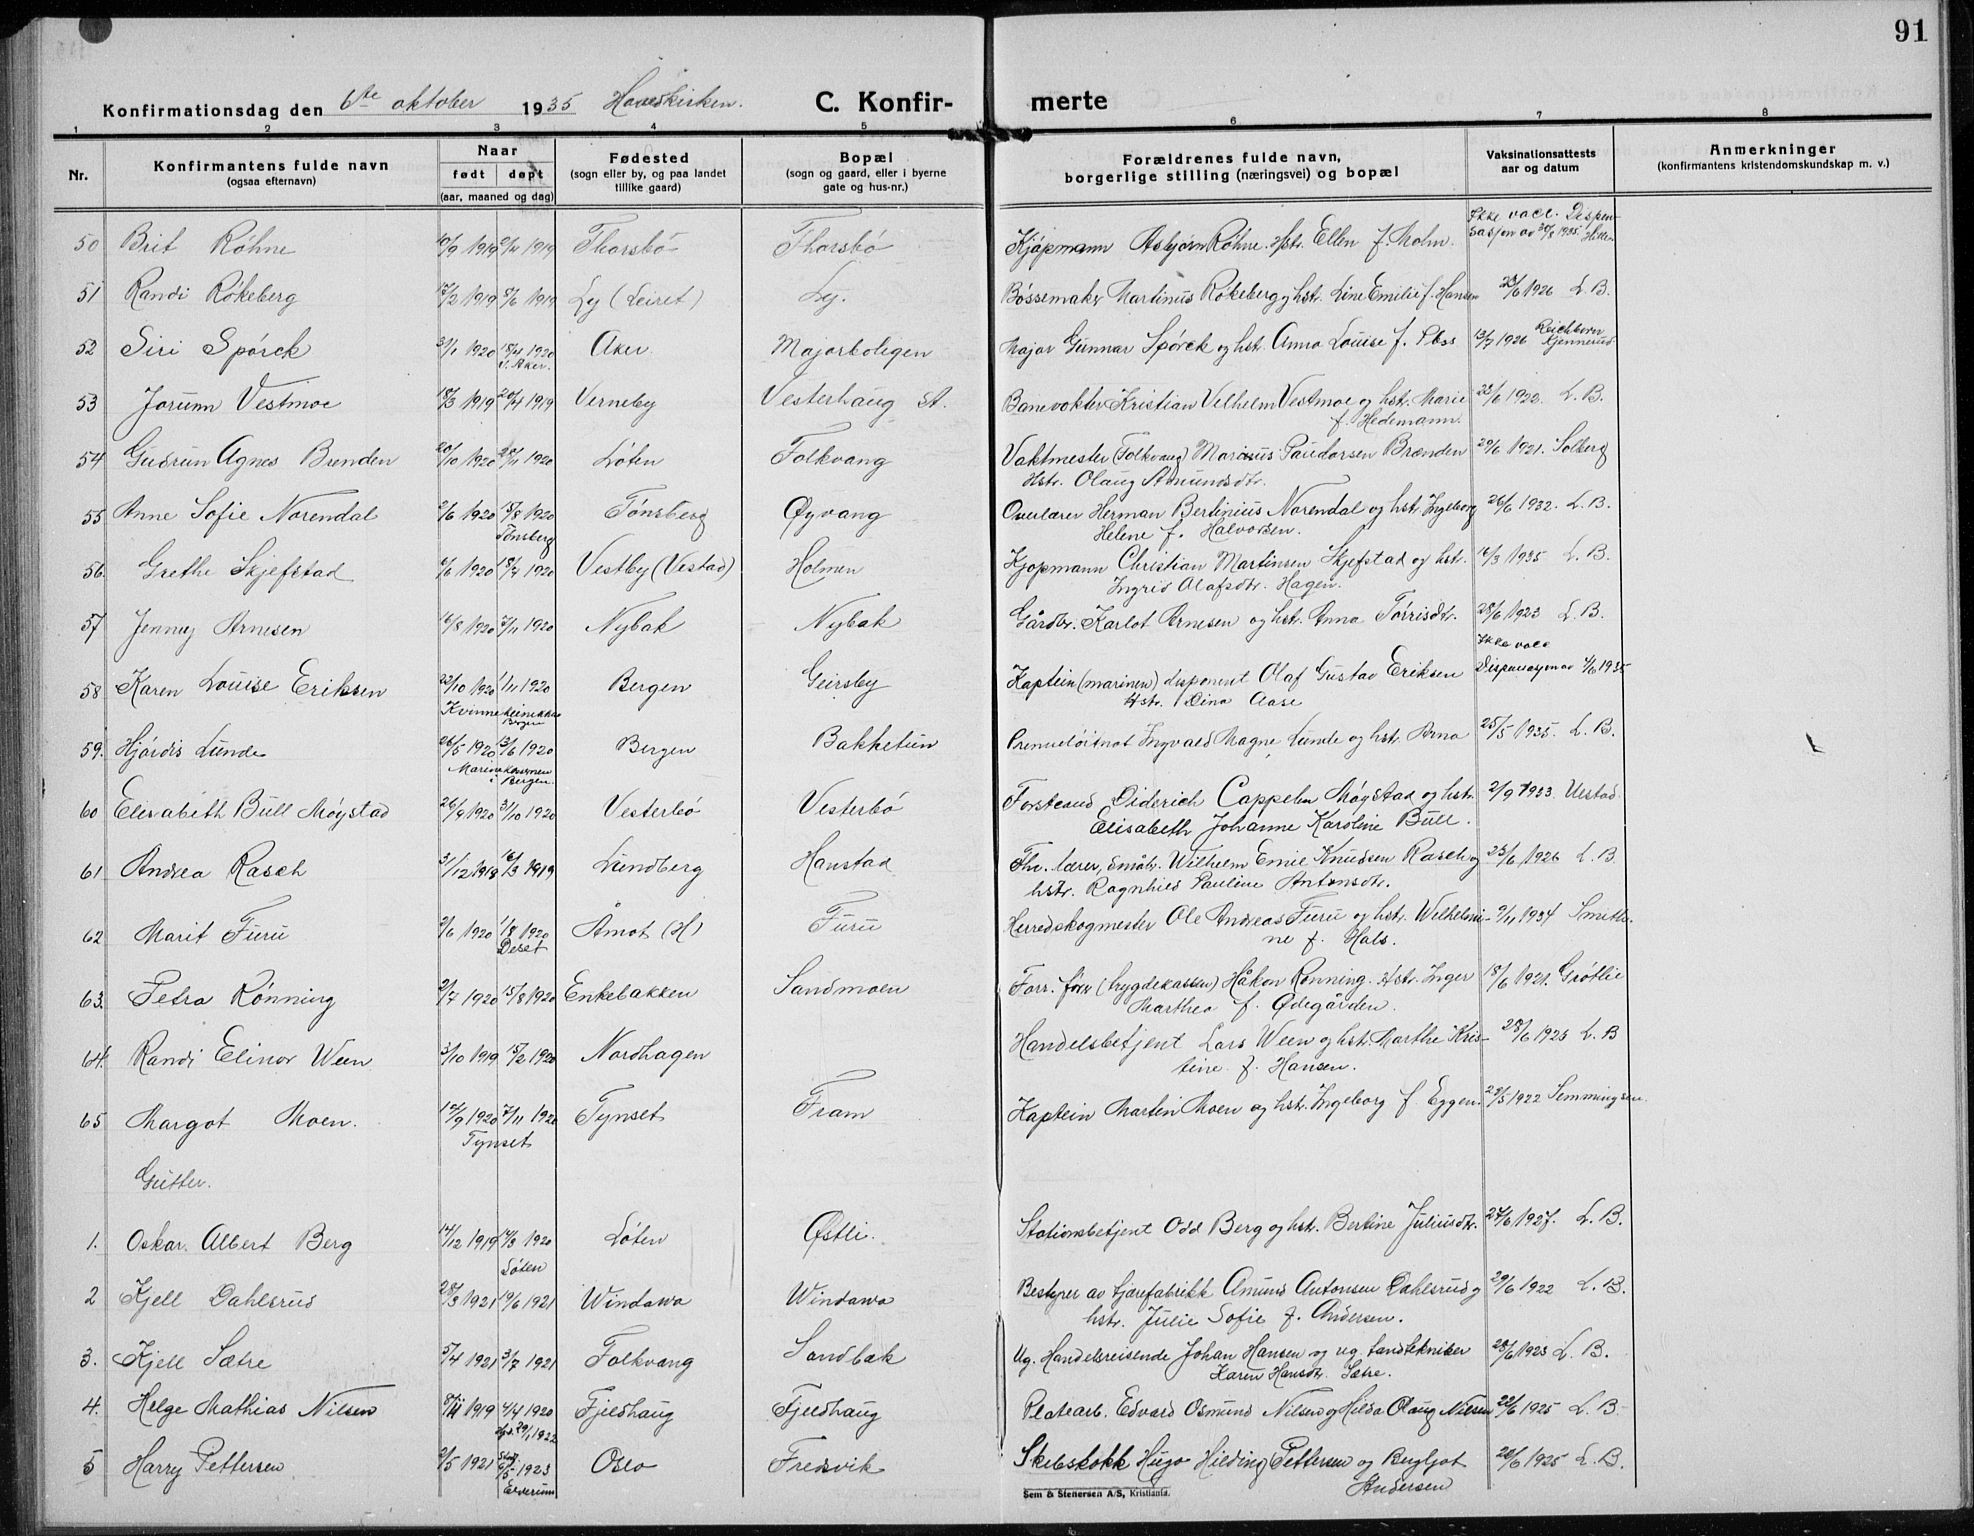 91
Konfirmationsdag den 6te oktober 1935 Hovedkirken. C. Konfir- merte
1 2 3 4 5 6 7 8
Nr. Konfirmantens fulde navn (ogsaa efternavn) Naar født døpt (aar, maaned og dag) Fødested (sogn eller by, og paa landet tillike gaard) Bopæl (sogn og gaard, eller i byerne gate og hus-nr.) Forældrenes fulde navn, borgerlige stilling (næringsvei) og bopæl Vaksinationsattests aar og datum Anmerkninger (konfirmantens kristendomskundskap m. v.)
Ikke vacc. Dispen-
50 Brit Röhne 10/9 1919 2/11 1919 Thorsbö Thorsbö Kjöpmann Asbjörn Röhne. Hstr. Ellen f. Mohn. sasjon av 30/8 1935.
51 Randi Rökeberg 17/2 1919 8/6 1919 Ly (Leiret) Ly. Bössemaker Martinus Rökeberg og hstr. Line Emilie f. Hansen 23/6 1926 L. B.
Reichborn
52 Siri Spörck 31/1 1920 18/4 1920 Aker Majorboligen Major Gunnar Spörck og hst. Anna Louise f. 13/7 1926 Kjennerud
V. Aker.
53 Jorunn Vestmoe 18/3 1919 20/4 1919 Verneby Vesterhaug st. Banevokter Kristian Vilhelm Vestmoe og hstr. Marie 23/6 1922. L. B.
f. Hedemann.
54 Gudrun Agnes Brenden 20/10 1920 28/11 1920 Löten Folkvang Vaktmester (Folkvang) Marinus Paudorsen Brænden 29/6 1921. Solberg
Hstr. Olaug Amundsdtr.
55 Anne Sofie Norendal 2/6 1920 15/8 1920 Tønsberg Øyvang Overlærer Herman Bertinius Norendal og hstr Ingeborg 26/6 1932. L. B.
Tönsberg Helene f. Halvorsen.
56. Grethe Skjefstad 6/6 1920 18/7 1920 Vestby (Vestad) Holmen Kjøpmann Christian Martinsen Skjefstad og hst. 16/3 1935 L. B.
Ingrid Olafsdtr. Hagen.
57 Jenny Arnesen 16/8 1920 7/11 1920 Nybak Nybak Gårdbr. Karlot Arnesen og hst. Anna Törrisdtr. 28/6 1923 L. B.
Ikke vacc
58 Karen Louise Eriksen 22/10 1920 1/11 1920 Bergen Geirsby Kaptein (marinen) disponent Olaf Gustav Eriksen Dispensasjon av 4/6 1935
Kvinneklinikken Bergen Hstr. Dina Aase
59. Hjördis Lunde 26/5 1920 13/6 1920 Bergen Bakketun Premieløitnat Ingvald Magne Lunde og hstr. Arna 25/5 1935. L. B.
i Bergen.
60 Elisabeth Bull Möystad 26/9 1920 31/10 1920 Vesterbö Vesterbö Forstcand Diderich Cappelen Möystad og hst. 2/9 1933. Uestad
Elisabeth Johanne Karoline Bull.
61 Andrea Rasch 31/12 1918 16/3 1919 Lundberg Hanstad Fhv. lærer, småbr. Wilhelm Emil Knudsen Rasch og 23/6 1926 L. B.
hstr. Ragnhild Pauline Antonsdtr.
62 Marit Furu 2/6 1920 1/8 1920 Åmot (H) Furu Herredskogmester Ole Andreas Furu og hst. Wilhelmi- 9/11 1934
Deset ne f. Hals.
63. Petra Rönning 2/7 1920 15/8 1920 Enkebakken Sandmoen Forr. förer (trygdekassen) Håkon Rønning. Hstr. Inger 18/6 1921. Grötlie
Marthea f. Ødegården.
64. Randi Elinor Ween 3/10 1919 15/2 1920 Nordhagen Handelsbetjent Lars Ween og hst. Marthe Kris- 28/6 1923 L. B
tine f. Hansen.
65 Margot Moen. 12/9 1920 7/11 1920 Tynset Fram Kaptein Martin Moen og hst. Ingeborg f. Eggen. 29/5 1922 Semmingsen
Tynset
Gutter.
1. Oskar Albert Berg 14/12 1919 14/3 1920 Löten Østli. Stationsbetjent Odd Berg og hst. Bertine Juliusdtr. 27/6 1927. L. B.
Löten
2 Kjell Dahlsrud 28/3 1921 19/6 1921 Windawa Windawa Bestyrer av tjærefabrikk Amund Antonsen Dahlsrud og 29/6 1922 L. B.
hstr. Julie Sofie f. Andersen.
3. Kjell Sætre 5/4 1921 31/7 1921 Folkvang Sandbæk Ug. Handelsreisende Johan Hansen og ug. tandtekniker 28/6 1923 L. B.
Karen Hansdtr. Sætre.
4. Helge Mathias Nilsen 8/11 1919 4/4 1920 Fjeldhaug Fjeldhaug Platearb. Edvard Osmund Nilsen og Hilda Olaug Nilsen 22/6 1925 L. B.
29/1 1922
5 Harry Pettersen 2/5 1921 6/5 1923 Oslo Fredvik Skibskokk Hugo Hilding Pettersen og Bergljot 20/6 1925 L. B.
Elverum Andersen
Sem & Stenersen A/S, Kristiania.